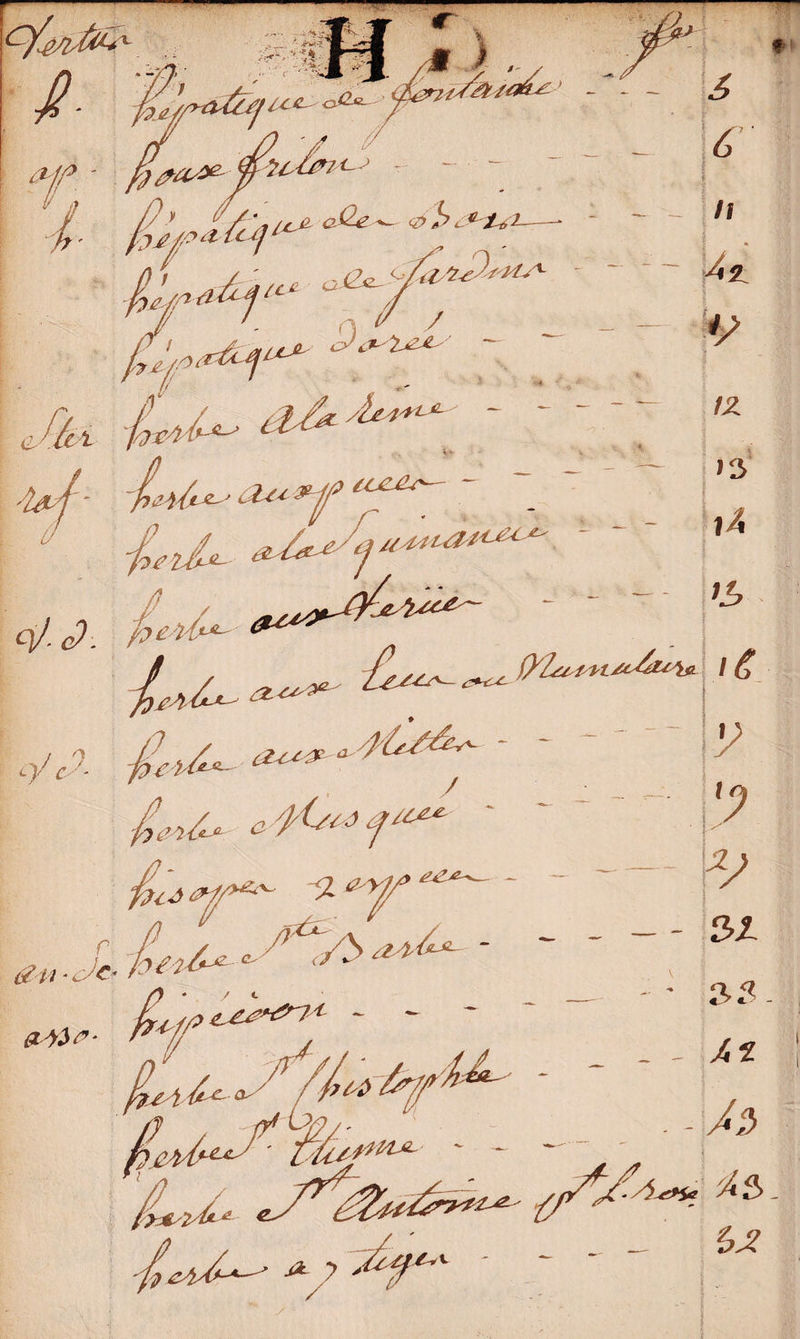 Vertus H fes
h. hépatique de fontaine - - - 5
ap. houx frilon - - - - - 6
h. hépatique des Bois - - - 11
hépatique de Jardins - - - 42
hépatique Dorée - - - - 17
Ster herbe Ala Reine - - - - - 12
raf. herbe aux puces - - - - - 13
herbe alaesquinancie - - - 14
V. D. herbe aux Verües - - - - 15
herbe aux Ecus ou Numulaire 16
V D. herbe aux Mittes - - - - - 17
herbe Musquée - - - - 19
hisopes 2 especes - - - - 27
an. Sc. herbe Ste Barbe - - - - - 32
asso. hipécoon - - - - - - 33
herbe St Christophle - - - - 42
herbe St Etienne - - - - 43
herbe St Antoine pt L. rose 43
herbe a 7 tiges - - - - 52